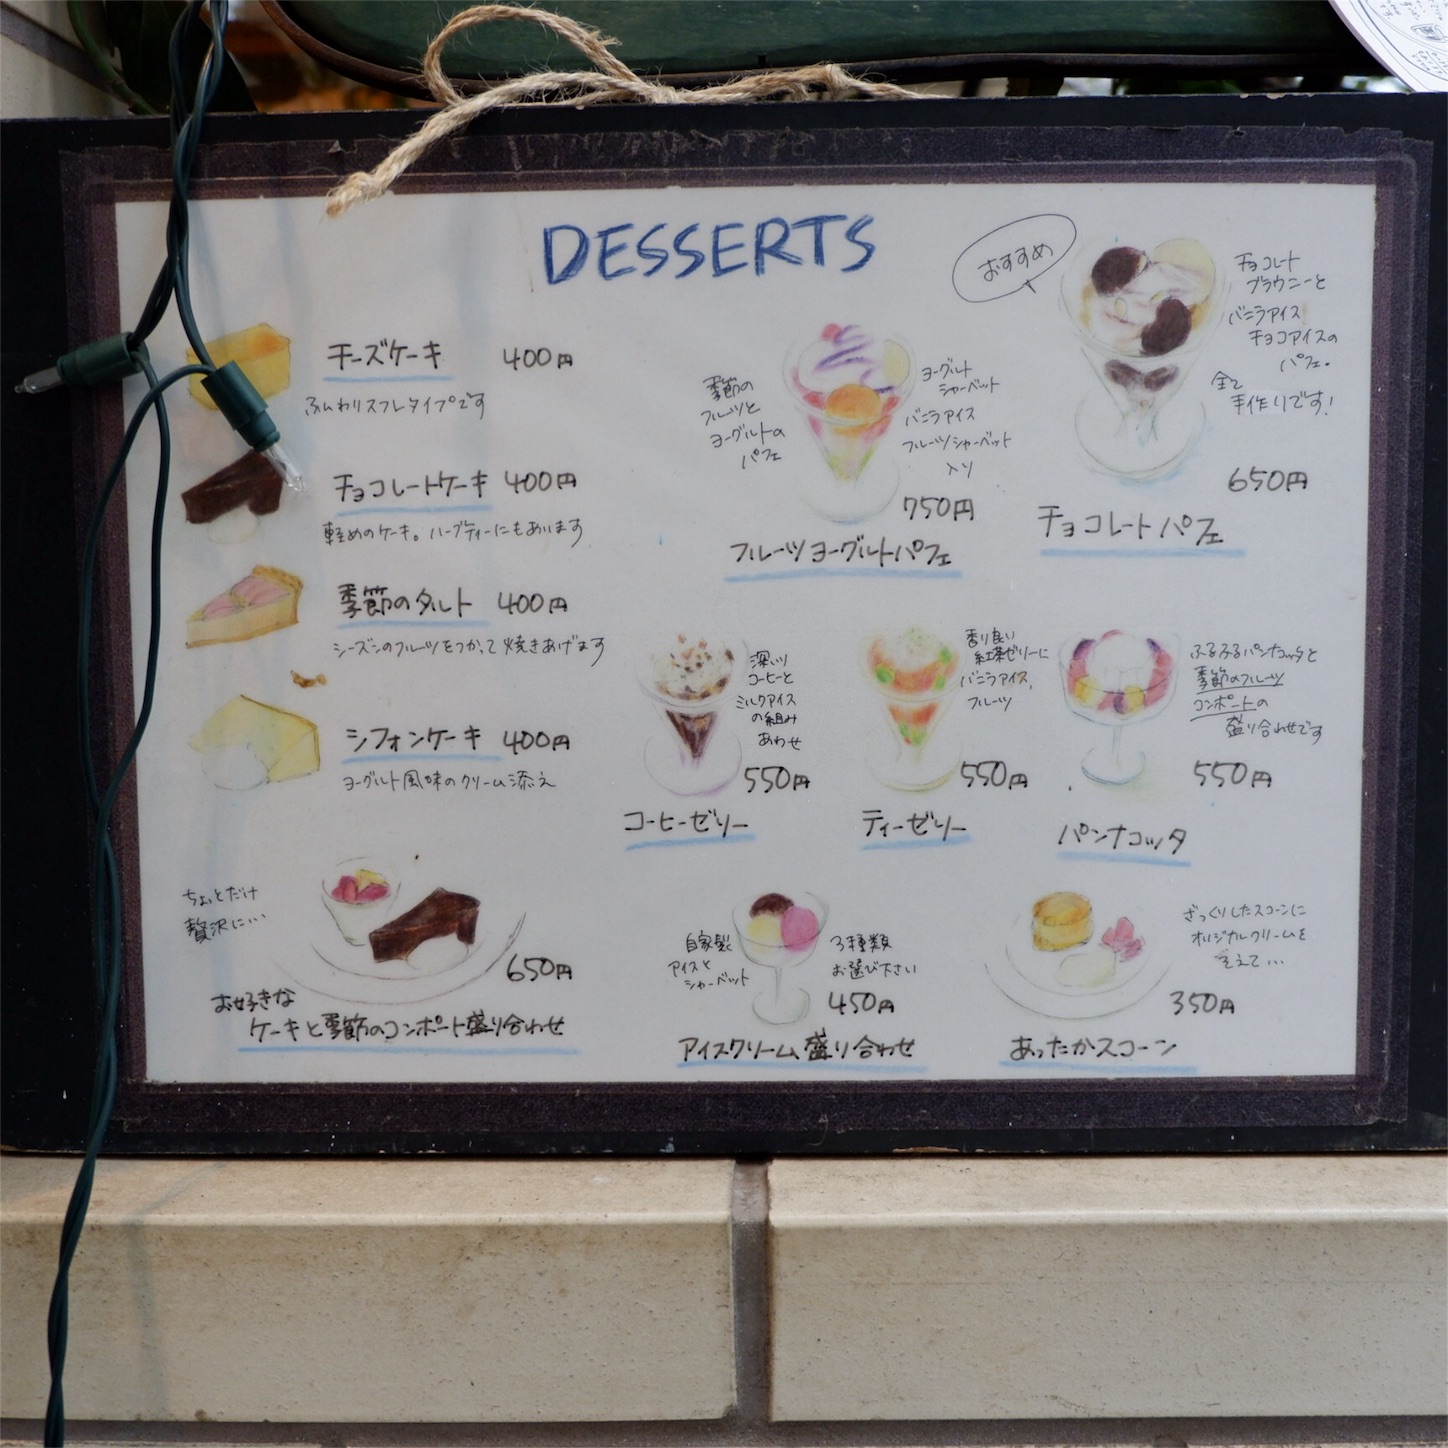 DESSERTS
チーズケーキ 400円
ふんわりスフレタイプです
チョコレートケーキ 400円
軽めのケーキ。ハーブティーにもあいます
季節のタルト 400円
シーズンのフルーツをつかって焼きあげます
シフォンケーキ 400円
ヨーグルト風味のクリーム添え
ちょっとだけ
贅沢に…
650円
お好きな
ケーキと季節のコンポート盛り合わせ
季節の
フルーツと
ヨーグルトの
パフェ
ヨーグルト
シャーベット
バニラアイス
フルーツシャーベット
入り
750円
フルーツヨーグルトパフェ
おすすめ
チョコレート
ブラウニーと
バニラアイス
チョコアイスの
パフェ。
全て
手作りです!
650円
チョコレートパフェ
深いり
コーヒーと
ミルクアイス
の組み
あわせ
550円
コーヒーゼリー
香り良い
紅茶ゼリーに
バニラアイス,
フルーツ
550円
ティーゼリー
ふるふるパンナコッタと
季節のフルーツ
コンポートの
盛り合わせです
550円
パンナコッタ
自家製
アイスと
シャーベット
3種類
お選び下さい
450円
アイスクリーム盛り合わせ
ざっくりしたスコーンに
オリジナルクリームを
そえて…
350円
あったかスコーン